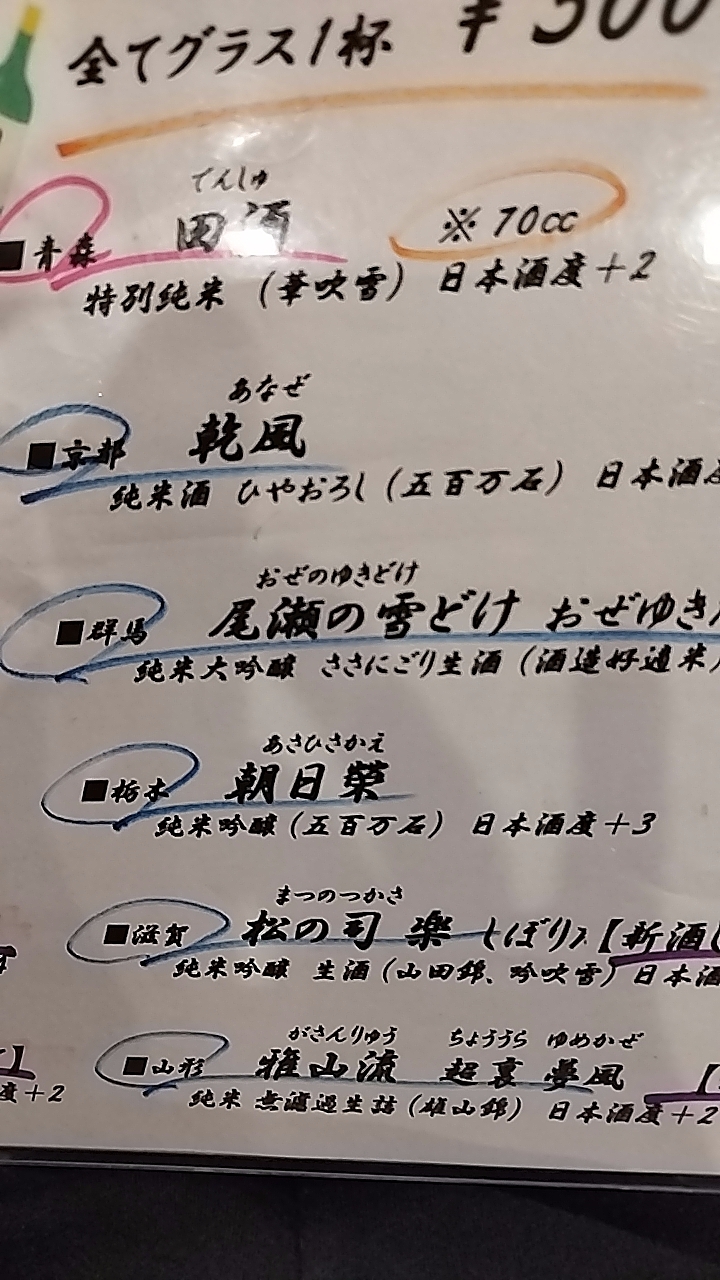 全てグラス1杯 ¥500
でんしゅ
■青森 田酒 ※70cc
特別純米 (華吹雪) 日本酒度+2
あなぜ
■京都 乾風
純米酒 ひやおろし (五百万石) 日本酒度
おぜのゆきどけ
■群馬 尾瀬の雪どけ おぜゆき
純米大吟醸 ささにごり生酒 (酒造好適米)
あさひさかえ
■栃木 朝日榮
純米吟醸 (五百万石) 日本酒度+3
まつのつかさ
■滋賀 松の司 楽 しぼり 【新酒
純米吟醸 生酒 (山田錦、吟吹雪) 日本酒
がさんりゅう ちょううら ゆめかぜ
■山形 雅山流 超裏 夢風 【
純米 無濾過生詰 (雄山錦) 日本酒度+2
】
度+2